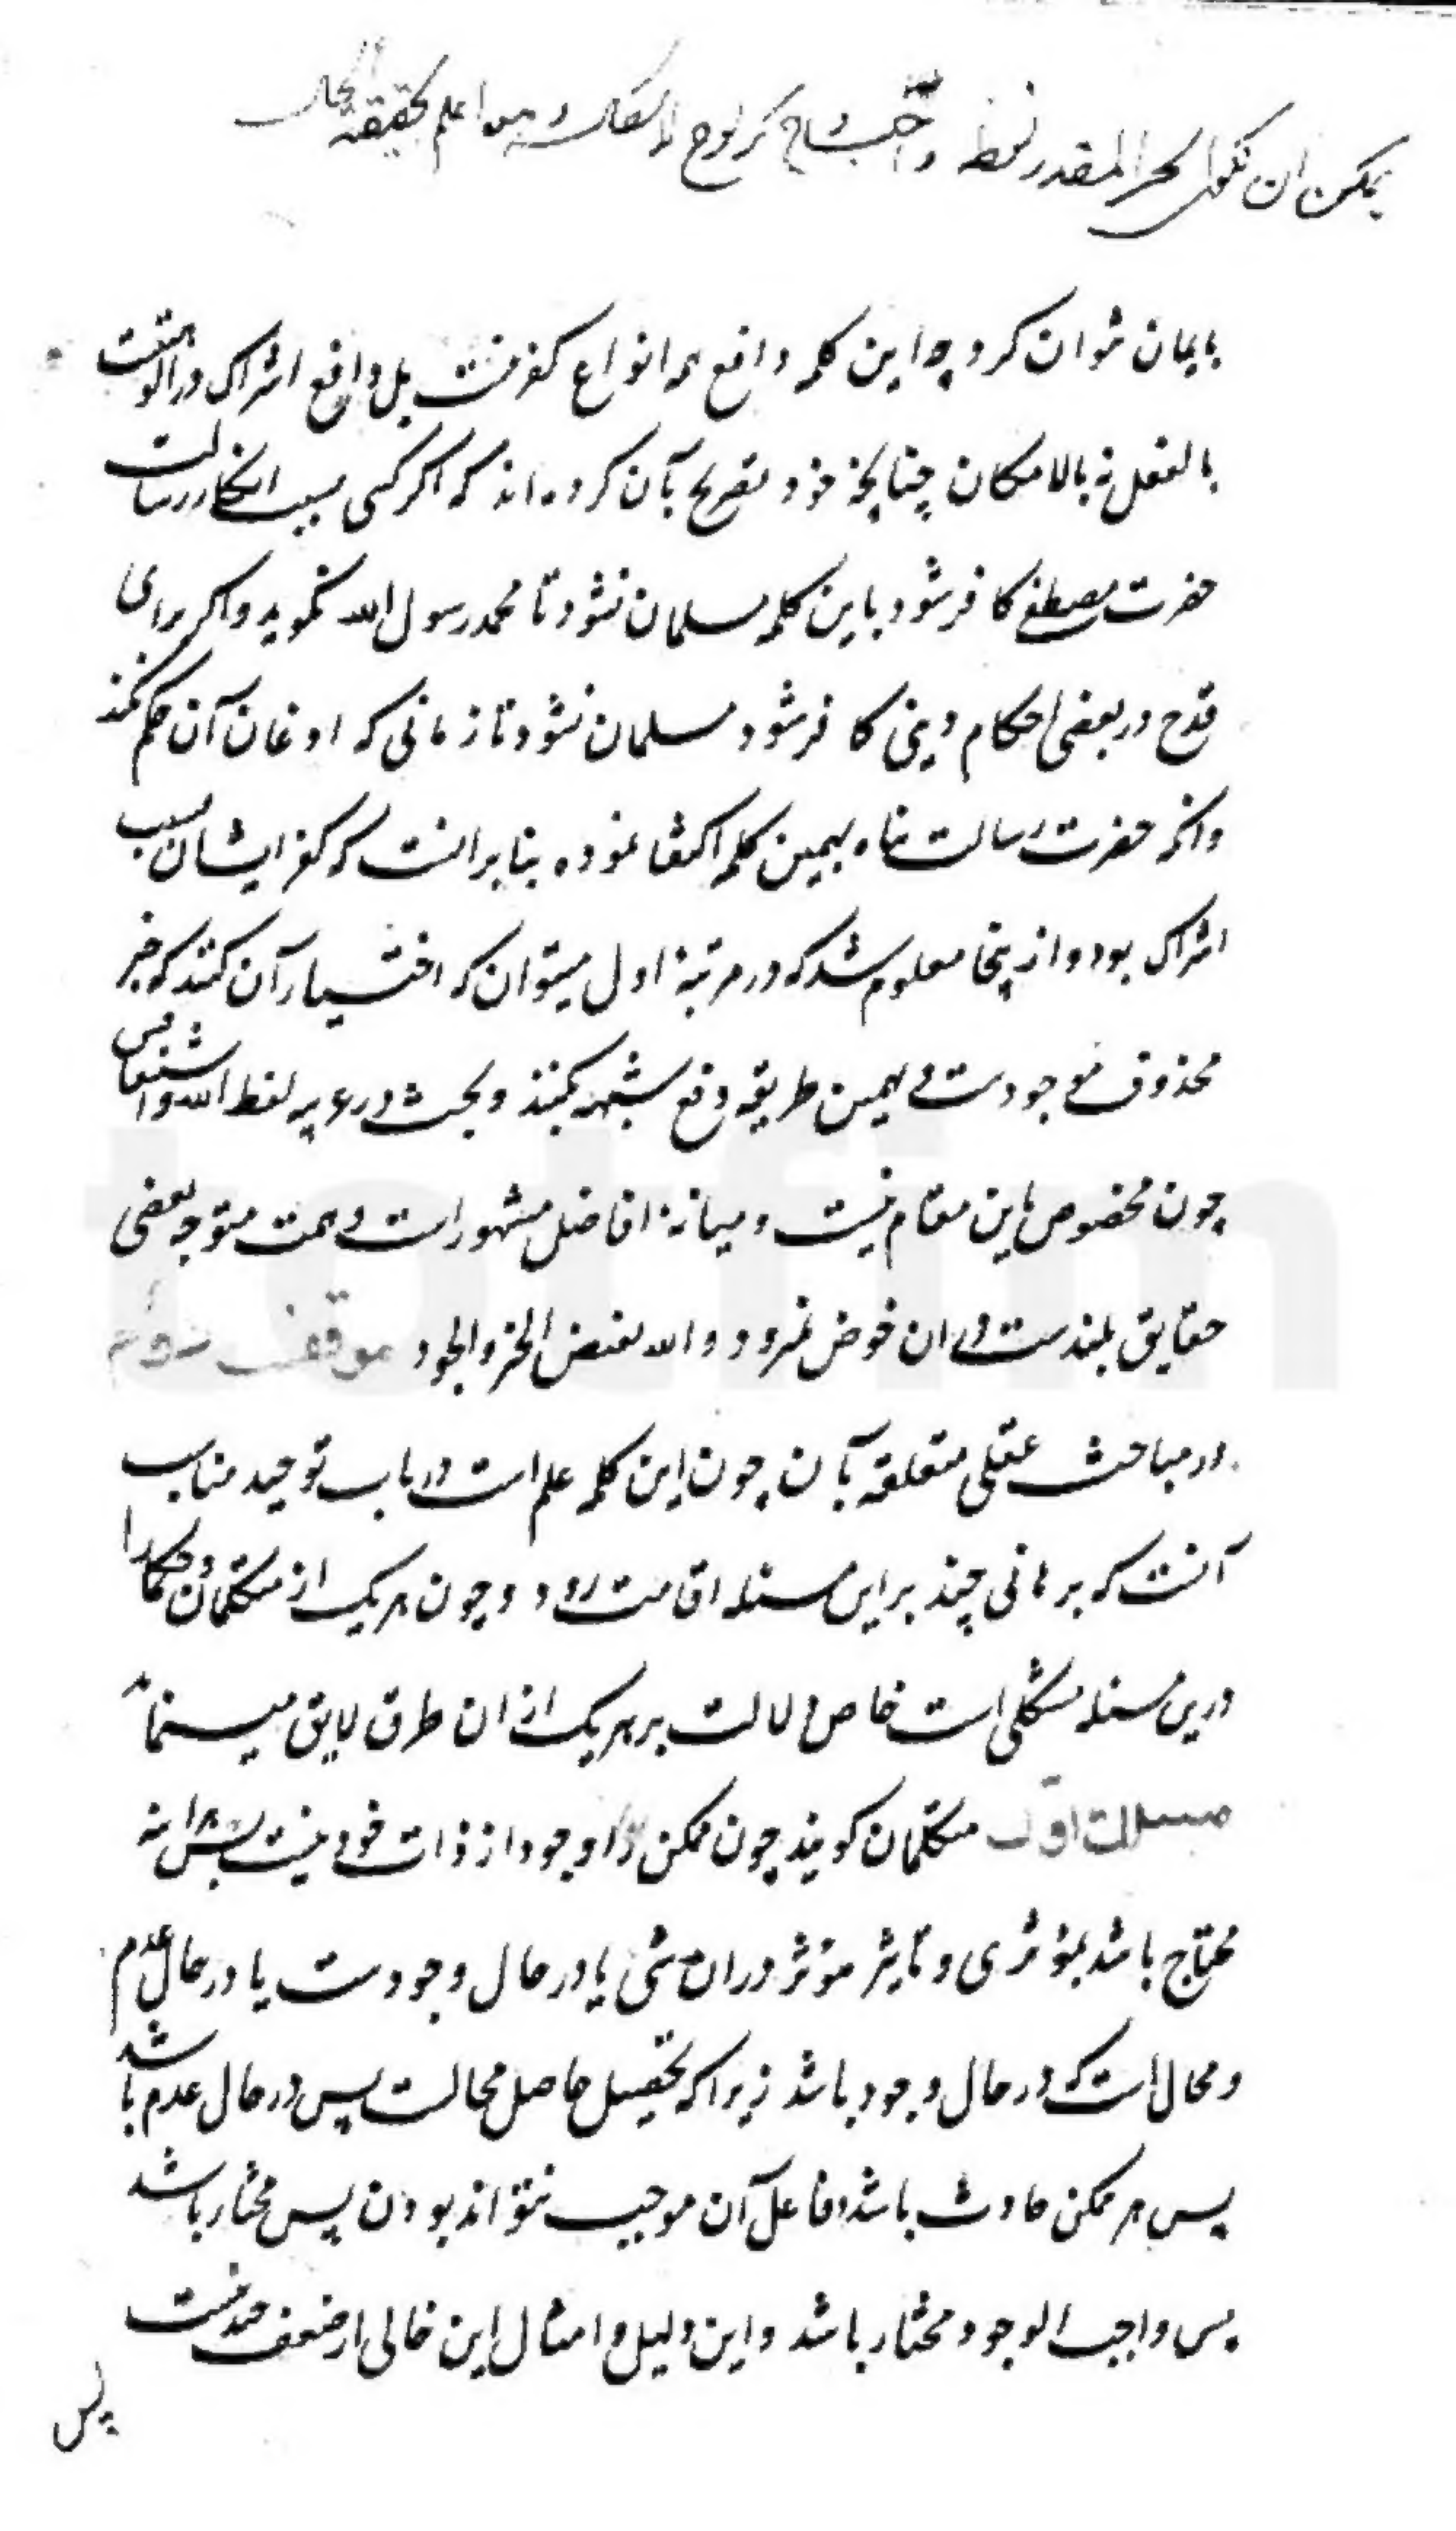 یمکن ان یکون الخبر المقدر لفظ واجب اعلم بحقیقة الحال
بایمان نتوان کرد چه این کلمه دافع همه انواع کفر نیست بل دافع اشراک در الوهیت
بالفعل نه بالامکان چنانچه خود تصریح بآن کرده‌اند که اگر کسی بسبب انکار رسالت
حضرت مصطفی کافر شود باین کلمه مسلمان نشود تا محمد رسول الله نگوید و اگر برای
قدح در بعضی احکام دینی کافر شود مسلمان نشود تا زمانی که اذعان آن حکم نکند
و آنکه حضرت رسالت پناه بهمین کلمه اکتفا نموده بنا بر انست که کفر ایشان بسبب
اشراک بود و از ینجا معلوم شد که در مرتبهٔ اول میتوان که اختیار آن کنند که خبر
محذوف موجودست و بهمین طریقه دفع شبهه بکنند و بحث در عربیه لفظ الله و اشتقاقش
چون مخصوص باین مقام نیست و میانهٔ افاضل مشهور است و همت متوجه بعضی
حقایق بلندست در ان خوض نمیرود و الله مفیض الخیر والجود موقف
در مباحث عقلی متعلقه بآن چون این کلمه علم است در باب توحید مناسب
آنست که برهانی چند بر این مسئله اقامت رود و چون هر یک از متکلمان و حکما را
درین مسئله مسلکی است خاص دلالت بر هر یک از ان طرق لایق مینماید
مسلک اول متکلمان گویند چون ممکن را وجود از ذات خود نیست پس هر اینه
محتاج باشد بمؤثری و تاثیر مؤثر در ان شی یا در حال وجودست یا در حال عدم
و محال است که در حال وجود باشد زیرا که تحصیل حاصل محالست پس در حال عدم باشد
پس هر ممکن حادث باشد و فاعل آن موجب نتواند بودن پس مختار باشد
پس واجب الوجود مختار باشد و این دلیل و امثال این خالی از ضعف خدشه نیست
پس